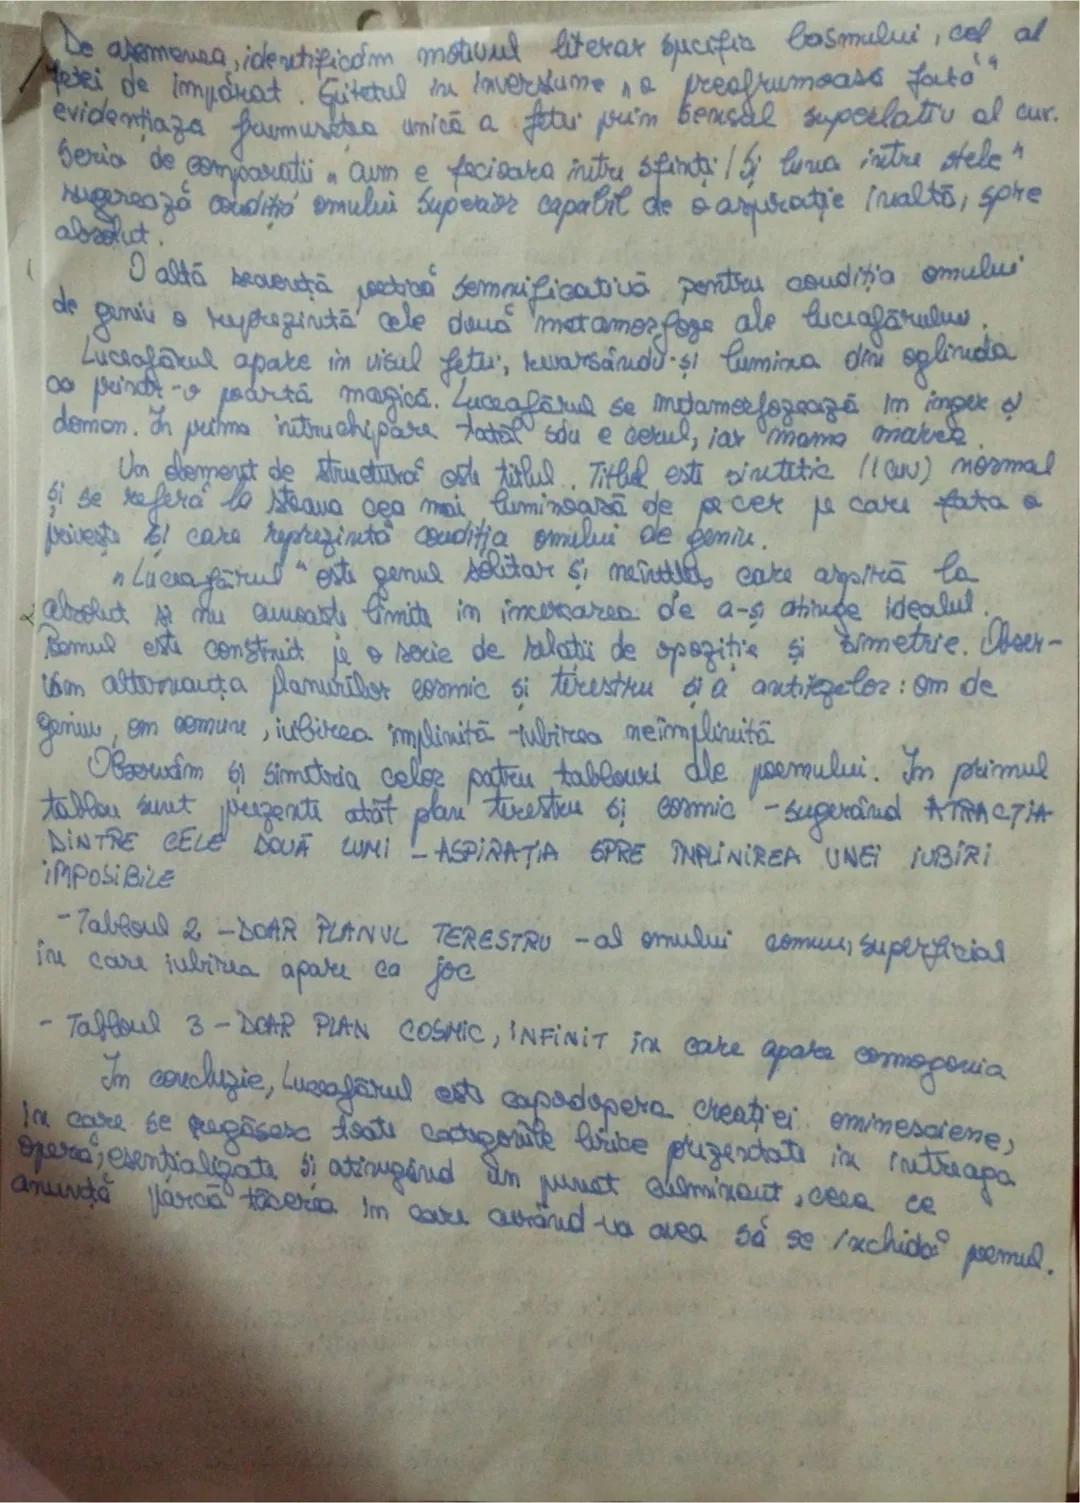 De asemenea, identificăm motivul literar specific basmului, cel al
fetei de împărat. Epitetul în inversiune „o preafrumoasă fată"
evidențiază frumusețea unică a fetei prin sensul superlativ al cuv.
Seria de comparații „cum e fecioara intre sfinți / Și luna intre stele"
sugerează condiția omului superior capabil de o aspirație inaltă, spre
absolut.
O altă secvență poetică semnificativă pentru condiția omului
de geniu o reprezintă cele două metamorfoze ale luceafărului.
Luceafărul apare in visul fetei, revarsându-și lumina din oglinda
ca printr-o poartă magică. Luceafărul se metamorfozează im inger și
demon. In prima intruchipare tatăl său e cerul, iar mama marea.
Un element de structură este titlul. Titlul este sintetic (1 cuv) normal
și se referă la steaua cea mai luminoasă de pe cer pe care fata o
privește și care reprezintă condiția omului de geniu.
„Luceafărul" este geniul solitar și neînțeles, care aspiră la
absolut și nu cunoaște limite in incercarea de a-și atinge idealul.
Poemul este construit pe o serie de relații de opoziție și simetrie. Obser-
văm alternanța planurilor cosmic si terestru și a antitezelor: om de
geniu, om comun, iubirea implinită - iubirea neîmplinită
Observăm și simetria celor patru tablouri ale poemului. In primul
tablou sunt prezente atât plan terestru și cosmic - sugerând ATRACȚIA
DINTRE CELE DOUĂ LUMI - ASPIRAȚIA SPRE INPLINIREA UNEI IUBIRI
IMPOSIBILE
- Tabloul 2 - DOAR PLANUL TERESTRU - al omului comun, superficial
in care iubirea apare ca joc
- Tabloul 3 - DOAR PLAN COSMIC, INFINIT in care apare cosmogonia
In concluzie, Luceafărul este capodopera creației eminesciene,
in care se regăsesc toate categoriile lirice prezentate in intreaga
operă, esențializate și atingând un punct culminant, ceea ce
anunță parcă tăcerea im care curând va avea să se inchidă poemul.